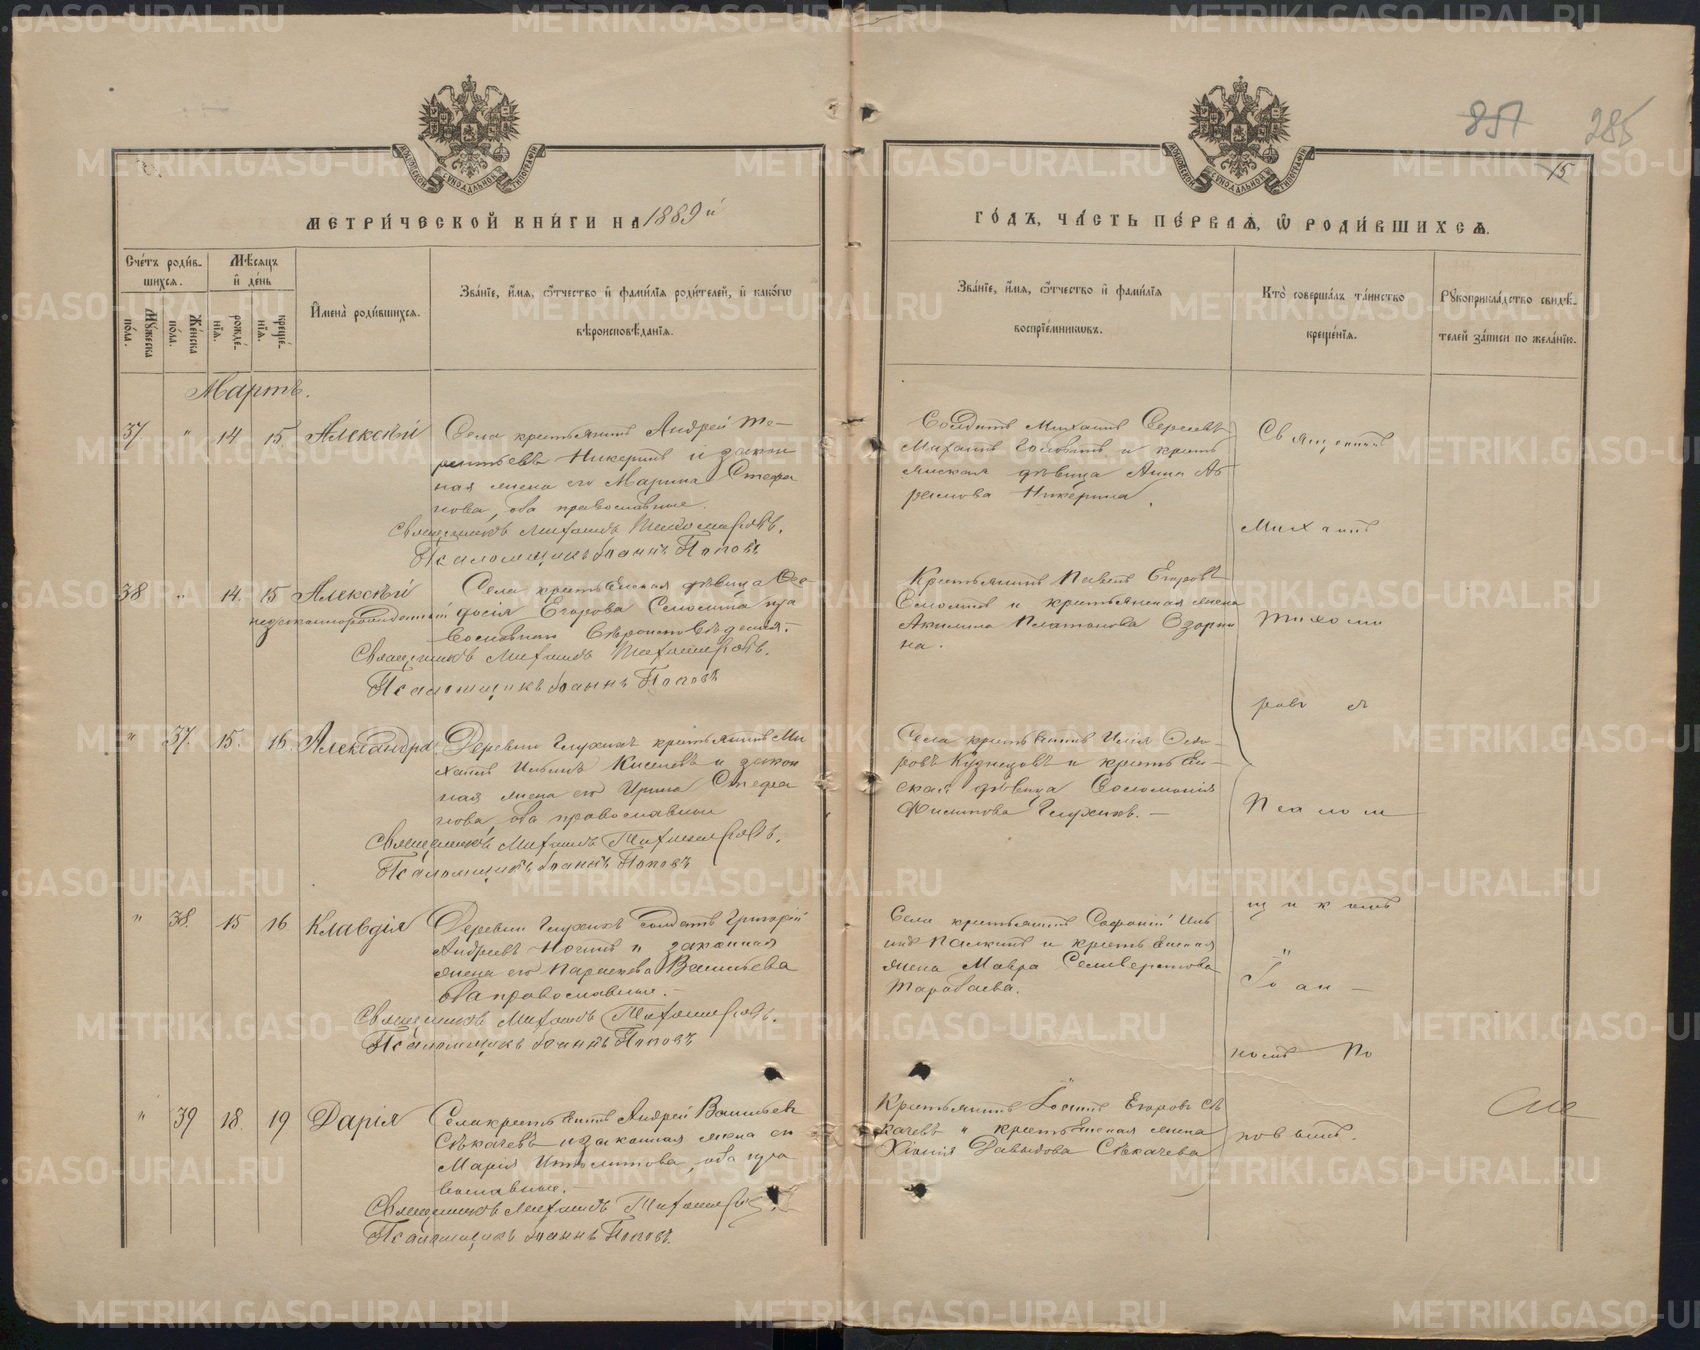 851 285
15
МЕТРИ́ЧЕСКОЙ КНИ́ГИ НА 1889 й
ГО́ДЪ, ЧА́СТЬ ПЕ́РВАѦ, Ѿ РОДИ́ВШИХСѦ.
Счéтъ роди́в-
шихся.
Мѣ́сяцъ
и҆ дéнь
Мꙋ́жеска
по́ла.
Жéнска
по́ла.
рождé-
нїя.
крещé-
нїя.
И҆менà роди́вшихся.
Зва́нїе, и҆́мя, ѻ҆́тчество и҆ фами́лїя роди́телей, и҆ како́гѡ
вѣроисповѣ́данїя.
Зва́нїе, и҆́мя, ѻ҆́тчество и҆ фами́лїя
воспрїе́мникѡвъ.
Кто̀ соверша́лъ та́инство
крещéнїя.
Рꙋкоприкла́дство свидѣ́-
телей за́писи по жела́нїю.
Мартъ.
37 " 14 15 Алексѣй
Села крестьянинъ Андрей Те-
рентьевъ Никеринъ и закон
ная жена его Марина Стефа
нова, оба православные.
Священникъ Михаилъ Тихомировъ.
Псаломщикъ Іоаннъ Поповъ
Солдатъ Михаилъ Сергеевъ
и крестъ
янская дѣвица Анна Аб
рамова Никерина.
Священникъ
Михаилъ
38 " 14. 15 Алексѣй
незаконнорожденный
Села крестьянская дѣвица Ѳео
досія Егорова Семкина пра
вославнаго вѣроисповѣданія.
Священникъ Михаилъ Тихомировъ.
Псаломщикъ Іоаннъ Поповъ
Крестьянинъ Павелъ Егоровъ
и крестьянская жена
Акилина Платонова Озорни
на.
Тихоми
ровъ и
" 37. 15. 16. Александра
Деревни Глухихъ крестьянинъ Ми
хаилъ Ильинъ Киселевъ и закон
ная жена его Ирина Стефа
нова, оба православные
Священникъ Михаилъ Тихомировъ.
Псаломщикъ Іоаннъ Поповъ
Села крестьянинъ Илія Ѳедо-
ровъ Кузнецовъ и крестьян-
ская дѣвица Соломонія
Филипова Глухихъ. —
Псалом
" 38. 15 16 Клавдія
Деревни Глухихъ солдатъ Григорій
Андреевъ и законная
жена его Параскева Васильева
оба православные. —
Священникъ Михаилъ Тихомировъ.
Псаломщикъ Іоаннъ Поповъ
Села крестьянинъ Софоній Иль
инъ Палкинъ и крестьянская
жена Мавра Селиверстова
Тарабаева.
щикомъ
Іоан-
номъ По
" 39 18. 19 Дарія
Села крестьянинъ Андрей Васильевъ
Сѣкачевъ и законная жена его
Марія Ипполитова, оба пра
вославные.
Священникъ Михаилъ Тихомировъ.
Псаломщикъ Іоаннъ Поповъ.
Крестьянинъ Іоаннъ Егоровъ Сѣ
качевъ и крестьянская жена
Хіонія Давыдова Сѣкачева
повымъ.
METRIKI.GASO-URAL.RU